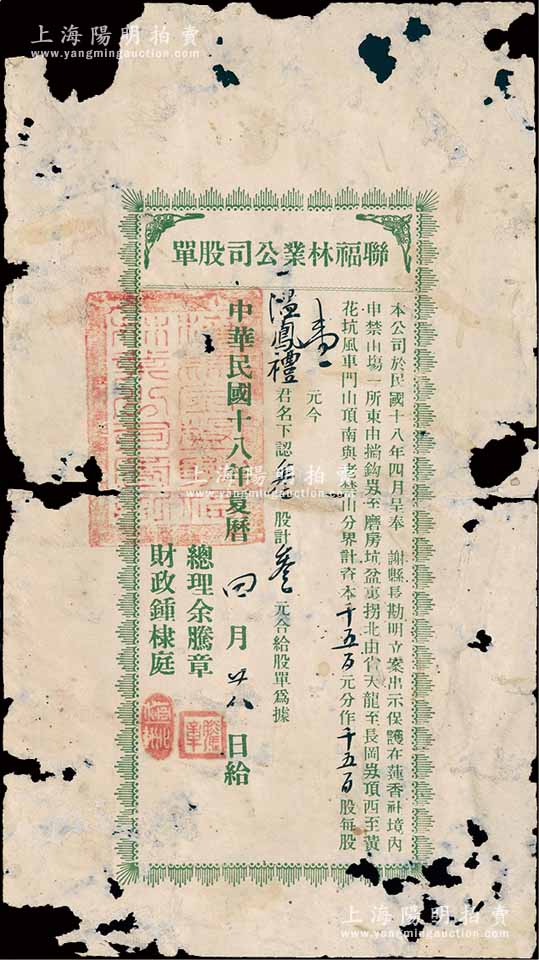 上海陽明拍賣
www.yangmingauction.com
聯福林業公司股單
本公司於民國十八年四月呈奉 謝縣長勘明立案出示保護在蓮香社境內
申禁山塲一所東由撈鈎㟅至磨房坑盆裏拐北由官天龍至長岡㟅頂西至黃
花坑風車門山頂南與老禁山分界計資本千五百元分作千五百股每股
壹元今
溫鳳禮君名下認叁股計叁元合給股單爲據
中華民國十八年夏曆四月廿八日給
總理余騰章
財政鍾棣庭
上海陽明拍賣
www.yangmingauction.com
上海陽明拍賣
www.yangmingauction.com